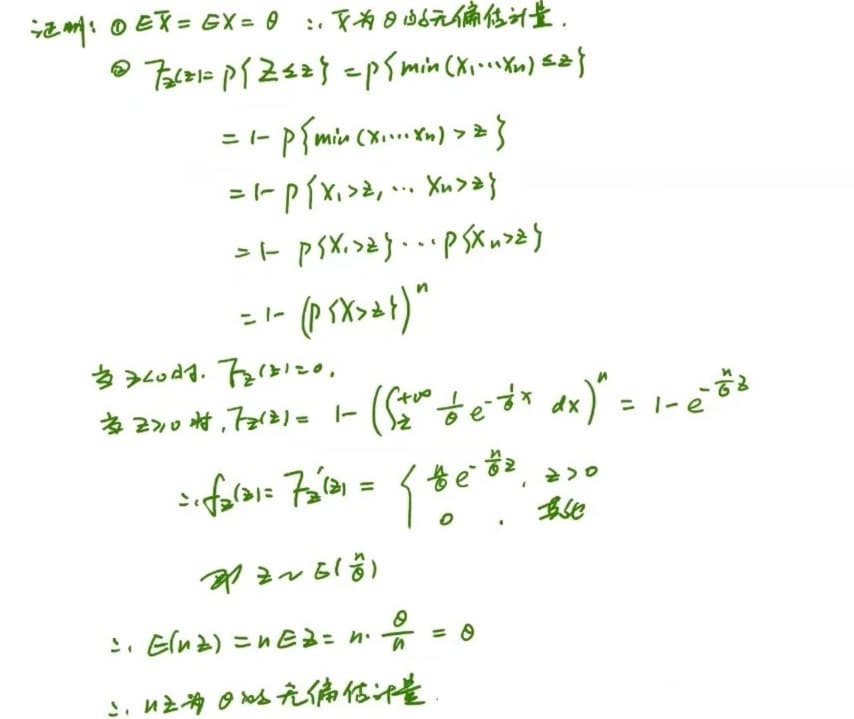 证明: ① EX̄ = EX = θ ∴ X̄为θ的无偏估计量.
② F_Z(z) = P{Z≤z} = P{min(X₁…Xₙ)≤z}
= 1- P{min(X₁…Xₙ)>z}
= 1- P{X₁>z, … Xₙ>z}
= 1- P{X₁>z}…P{Xₙ>z}
= 1- (P{X>z})ⁿ
当z<0时. F_Z(z)=0.
当z≥0时, F_Z(z) = 1- (∫_z^{+∞} 1/θ e^{-1/θ x} dx)ⁿ = 1-e^{-n/θ z}
∴ f_Z(z) = F_Z'(z) = { n/θ e^{-n/θ z}, z>0
0 , 其他
即 Z ~ E(n/θ)
∴ E(nZ) = nEZ = n· θ/n = θ
∴ nZ为θ的无偏估计量.